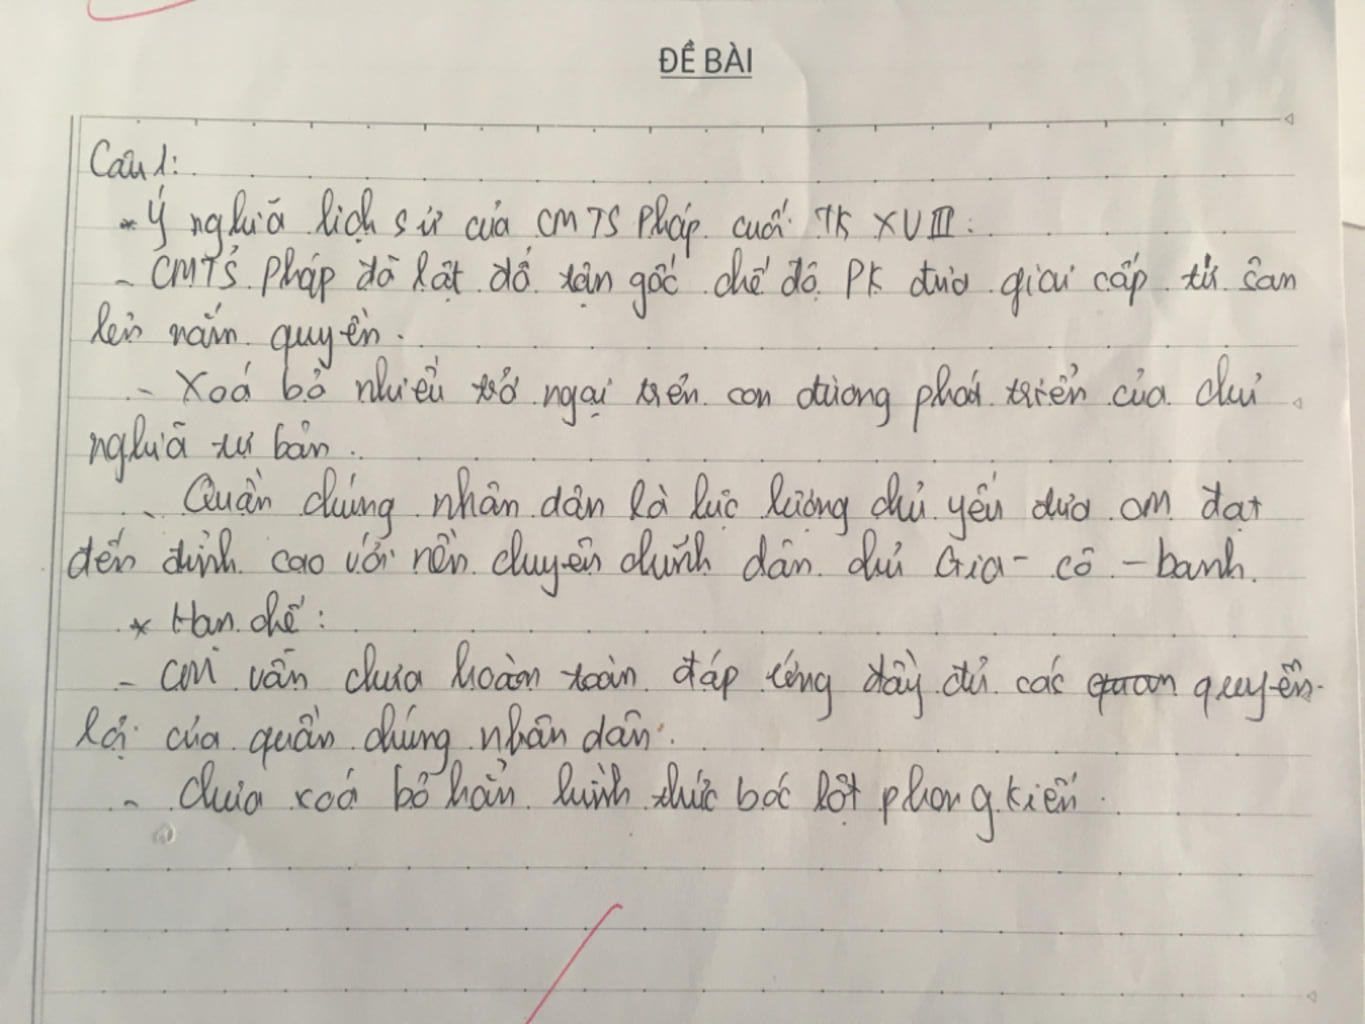 ĐỀ BÀI
Câu 1:
* Ý nghĩa lịch sử của CMTS Pháp cuối TK XVIII:
- CMTS Pháp đã lật đổ tận gốc chế độ PK đưa giai cấp tư sản
lên nắm quyền.
- Xoá bỏ nhiều trở ngại trên con đường phát triển của chủ
nghĩa tư bản.
- Quần chúng nhân dân là lực lượng chủ yếu đưa CM đạt
đến đỉnh cao với nền chuyên chính dân chủ Gia - cô - banh.
* Hạn chế:
- CM vẫn chưa hoàn toàn đáp ứng đầy đủ các quyền
lợi của quần chúng nhân dân.
- Chưa xoá bỏ hẳn hình thức bóc lột phong kiến.